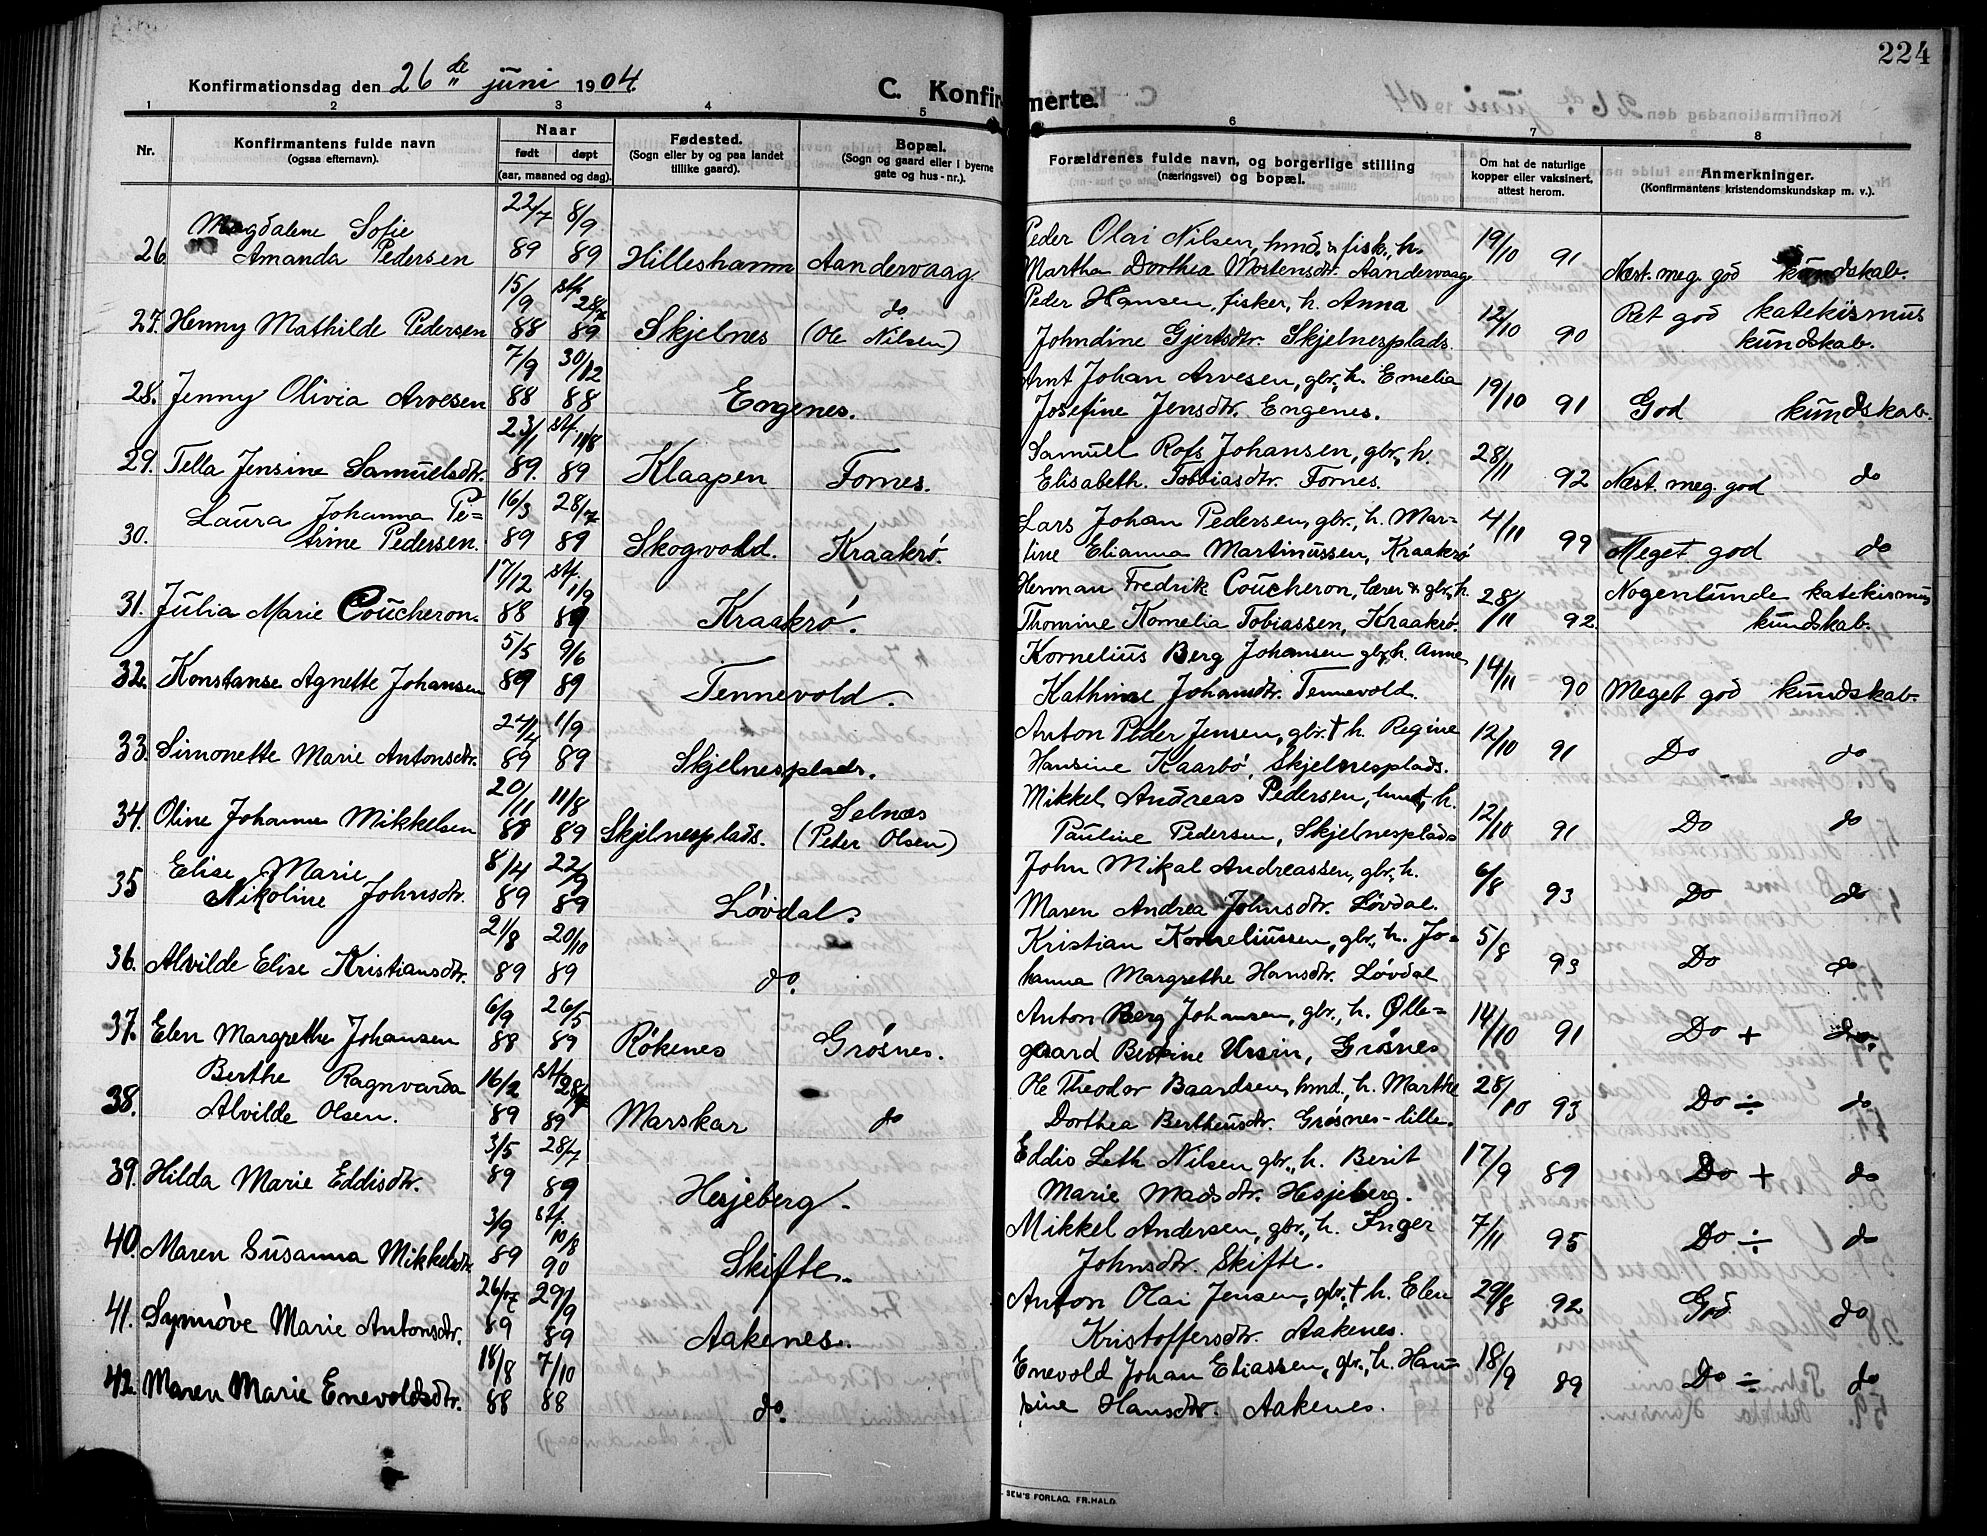 224
Konfirmationsdag den 26de juni 1904.
C. Konfirmerte.
1 2 3 4 5 6 7 8
Nr.
Konfirmantens fulde navn
(ogsaa efternavn).
Naar
født døpt
(aar, maaned og dag).
Fødested.
(Sogn eller by og paa landet
tillike gaard).
Bopæl.
(Sogn og gaard eller i byerne
gate og hus-nr.).
Forældrenes fulde navn, og borgerlige stilling
(næringsvei) og bopæl.
Om hat de naturlige
kopper eller vaksinert,
attest herom.
Anmerkninger.
(Konfirmantens kristendomskundskap m. v.).
Magdalene Sofie 22/7 8/9 Peder Olai Nilsen, hmd. & fisk., h. 19/10
26 Amanda Pedersen 89 89 Hilleshamn Aandervaag Martha Dorthea Mortensdtr. Aandervaag 91 Næst. meg. god kundskab.
15/9 stf. Peder Hansen, fisker, h. Anna 12/10 Ret god katekismus
27. Henny Mathilde Pedersen 88 89 Skjelnes do (Ole Nilsen) Johndine Gjertsdtr. Skjelnesplads 90 kundskab.
7/9 30/12 Arnt Johan Arvesen, gbr., h. Emelia 19/10
28. Jenny Olivia Arvesen 88 88 Engenes. Josefine Jensdtr. Engenes. 91 God kundskab.
23/1 stf. 11/8 Samuel Rofs Johansen, gbr., h. 28/11
29. Tella Jensine Samuelsdtr. 89. 89 Klaapen Fornes. Elisabeth Tobiasdtr. Fornes. 92 Næst. meg. god do
Laura Johanna Pe= 16/3 28/7 Lars Johan Pedersen, gbr., h. Mar= 4/11
30. trine Pedersen. 89 89 Skogvold. Kraakrø. tine Elianna Martinussen, Kraakrø 99 Meget god do
17/12 stf. 1/9 Herman Fredrik Coucheron, lærer & gbr., h. 28/11 Nogenlunde katekismus
31. Julia Marie Coucheron. 88 89 Kraakrø. Thomine Kornelia Tobiassen, Kraakrø. 92. kundskab.
5/5 9/6 Kornelius Berg Johansen gbr., h. Anne 14/11
32. Konstanse Agnette Johansen 89 89 Tennevold. Kathinse Johansdtr. Tennevold. 90 Meget god kundskab.
24/4 1/9 Anton Peder Jensen, gbr. † h. Regine 12/10
33. Simonette Marie Antonsdtr. 89 89 Skjelnesplads. Hansine Kaarbø, Skjelnesplads. 91 Do do
20/11 11/8 Selnæs Mikkel Andreas Pedersen, hmd., h. 12/10
34. Oline Johanne Mikkelsen 88 89 Skjelnesplads. (Peter Olsen) Pauline Pedersen, Skjelnesplads 91 Do do
Elise Marie 8/4 22/9 John Mikal Andreassen, gbr., h. 6/8
35 Nikoline Johnsdtr. 89 89 Løvdal. Maren Andrea Johnsdtr. Løvdal. 93 Do do
21/8 20/10 Kristian Korneliussen, gbr., h. Jo= 5/8
36. Alvilde Elise Kristiansdtr. 89 89 do. hanna Margrethe Hansdtr. Løvdal 93 Do do
6/9 26/5 Anton Berg Johansen, gbr., h. Ølle= 14/10
37. Elen Margrethe Johansen 88 89 Røkenes Grøsnes. gaard Bertine Ursin, Grøsnes 91 Do + do.
Berthe Ragnvarda 16/2 stf. Ole Theodor Baardsen, hmd., h. Marthe 28/10
38. Alvilde Olsen. 89 89 Marskar do Dorthea Bertheusdtr. Grøsnes-lille. 93 Do ÷ do
3/5 28/7 Eddis Leth Nilsen gbr., h. Berit 17/9
39. Hilda Marie Eddisdtr. 89 89 Hesjeberg. Marie Madsdtr. Hesjeberg. 89 Do + do
3/9 stf. 10/8 Mikkel Andersen, gbr., h. Inger 7/11
40. Maren Susanna Mikkelsdtr. 89 90 Skifte. Johnsdtr. Skifte. 95 Do ÷ do
26/7 29/9 Anton Olai Jensen, gbr., † h. Elen 29/8
41. Synnøve Marie Antonsdtr. 89 89 Aakenes. Kristoffersdtr. Aakenes. 92 God do
18/8 7/10 Enevold Johan Eliassen, gbr., h. Han= 18/9
42. Maren Marie Enevoldsdtr. 88 88 do. sine Hansdtr. Aakenes. 89 Do ÷ do
SEM'S FORLAG, FR.HALD.